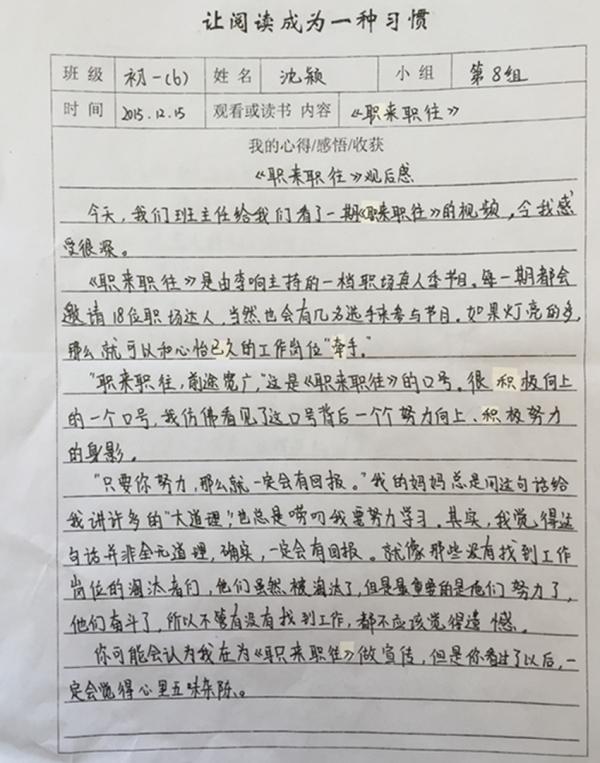 让阅读成为一种习惯
班级 初一(6) 姓名 沈颖 小组 第8组
时间 2015.12.15 观看或读书 内容 《职来职往》
我的心得/感悟/收获
《职来职往》观后感
今天，我们班主任给我们看了一期《职来职往》的视频，令我感
受很深。
《职来职往》是由李响主持的一档职场真人季节目。每一期都会
邀请18位职场达人，当然也会有几名选手来参与节目。如果灯亮的多，
那么就可以和心怡已久的工作岗位“牵手。”
“职来职往，前途宽广，”这是《职来职往》的口号。很积极向上
的一个口号，我仿佛看见了这口号背后一个个努力向上、积极努力
的身影。
“只要你努力，那么就一定会有回报。”我的妈妈总是用这句话给
我讲许多的“大道理”，也总是唠叨我要努力学习。其实，我觉得这
句话并非全无道理，确实，一定会有回报。就像那些没有找到工作
岗位的淘汰者们，他们虽然被淘汰了，但是最重要的是他们努力了，
他们奋斗了，所以不管有没有找到工作，都不应该觉得遗憾。
你可能会认为我在为《职来职往》做宣传，但是你看过了以后，一
定会觉得心里五味杂陈。